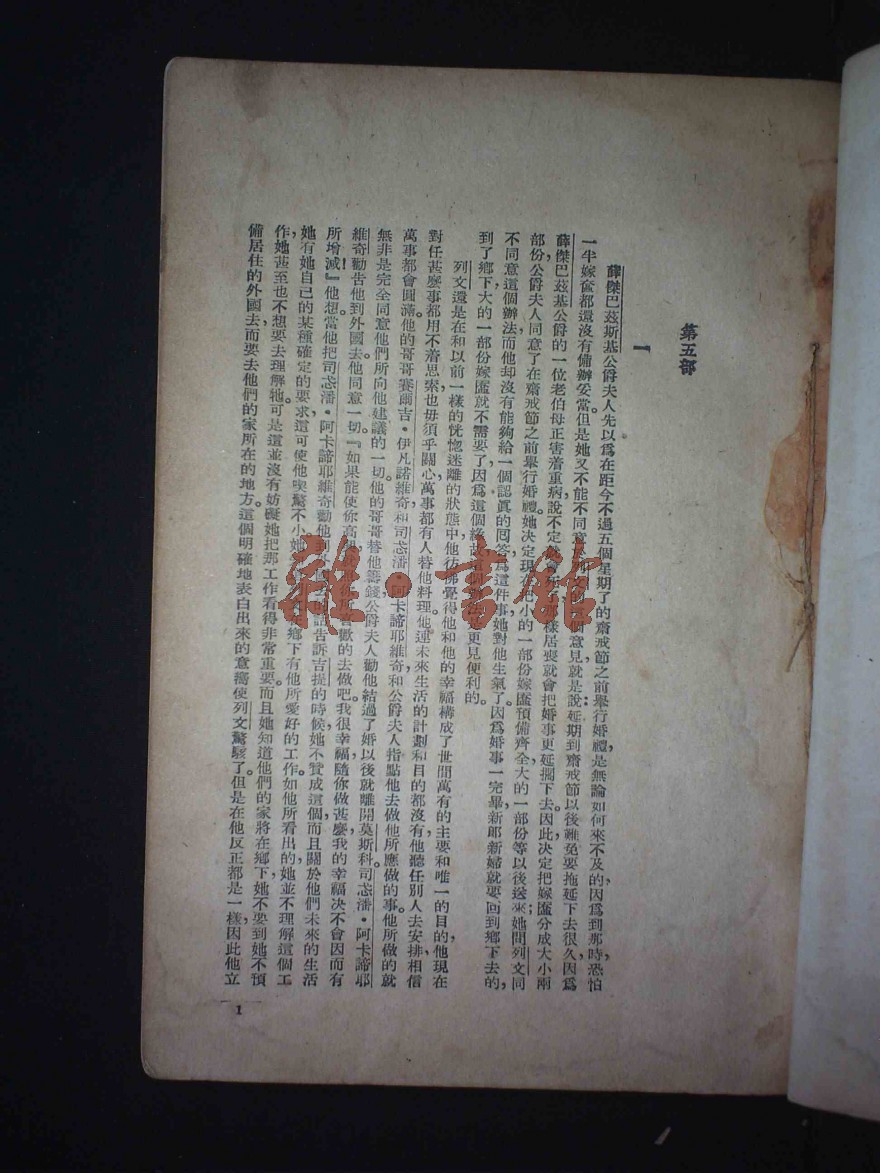 第五部
一
薛傑巴茲斯基公爵夫人先以爲在距今不過五個星期了的齋戒節之前舉行婚禮,是無論如何來不及的,因爲到那時恐怕
一半嫁奩都還沒有備辦妥當。但是她又不能不同意於列文的這個意見,就是說:延期到齋戒節以後難免要拖延下去很久,因爲
薛傑巴茲基公爵的一位老伯母正害着重病,說不定就會死了,那樣居喪就會把婚事更延擱下去。因此决定把嫁匳分成大小兩
部份,公爵夫人同意了在齋戒節之前舉行婚禮。她决定現在把小的一部份嫁匳預備齊全,大的一部份等以後送來;她問列文同
不同意這個辦法,而他却沒有能夠給一個認眞的囘答,爲這件事,她對他生氣了。因爲婚事一完畢,新郎新婦就要囘到鄉下去的,
到了鄉下,大的一部份嫁匳就不需要了,因爲這個緣故,這個辦法是更見便利的。
列文還是在和以前一樣的恍惚迷離的狀態中,他彷彿覺得他和他的幸福構成了世間萬有的主要和唯一的目的,他現在
對任甚麽事都用不着思索也毋須乎關心,萬事都有人替他料理。他連未來生活的計劃和目的都沒有,他聽任別人去安排,相信
萬事都會圓滿。他的哥哥賽爾吉·伊凡諾維奇和司忒潘·阿卡諦耶維奇和公爵夫人指點他去做他所應做的事。他所做的就
無非是完全同意他們所向他建議的一切。他的哥哥替他籌錢,公爵夫人勸他結過了婚以後就離開莫斯科。司忒潘·阿卡諦耶
維奇勸告他到外國去。他同意一切。『如果能使你高興,你所喜歡的去做吧。我很幸福,隨你做甚麽,我的幸福决不會因而有
所增減!』他想。當他把司忒潘·阿卡諦耶維奇勸他到外國去的話告訴吉提的時候,她不贊成這個,而且關於他們未來的生活
她有她自己的某種確定的要求,這可使他喫驚不小。她知道列文在鄉下有他所愛好的工作。如他所看出的,她並不理解這個工
作,她甚至也不想要去理解牠。可是這並沒有妨礙她把那工作看得非常重要。而且她知道他們的家將在鄉下,她不要到她不預
備居住的外國去,而要去他們的家所在的地方。這個明確地表白出來的意嚮使列文驚駭了。但是在他反正都是一樣,因此他立
1
雜·書館